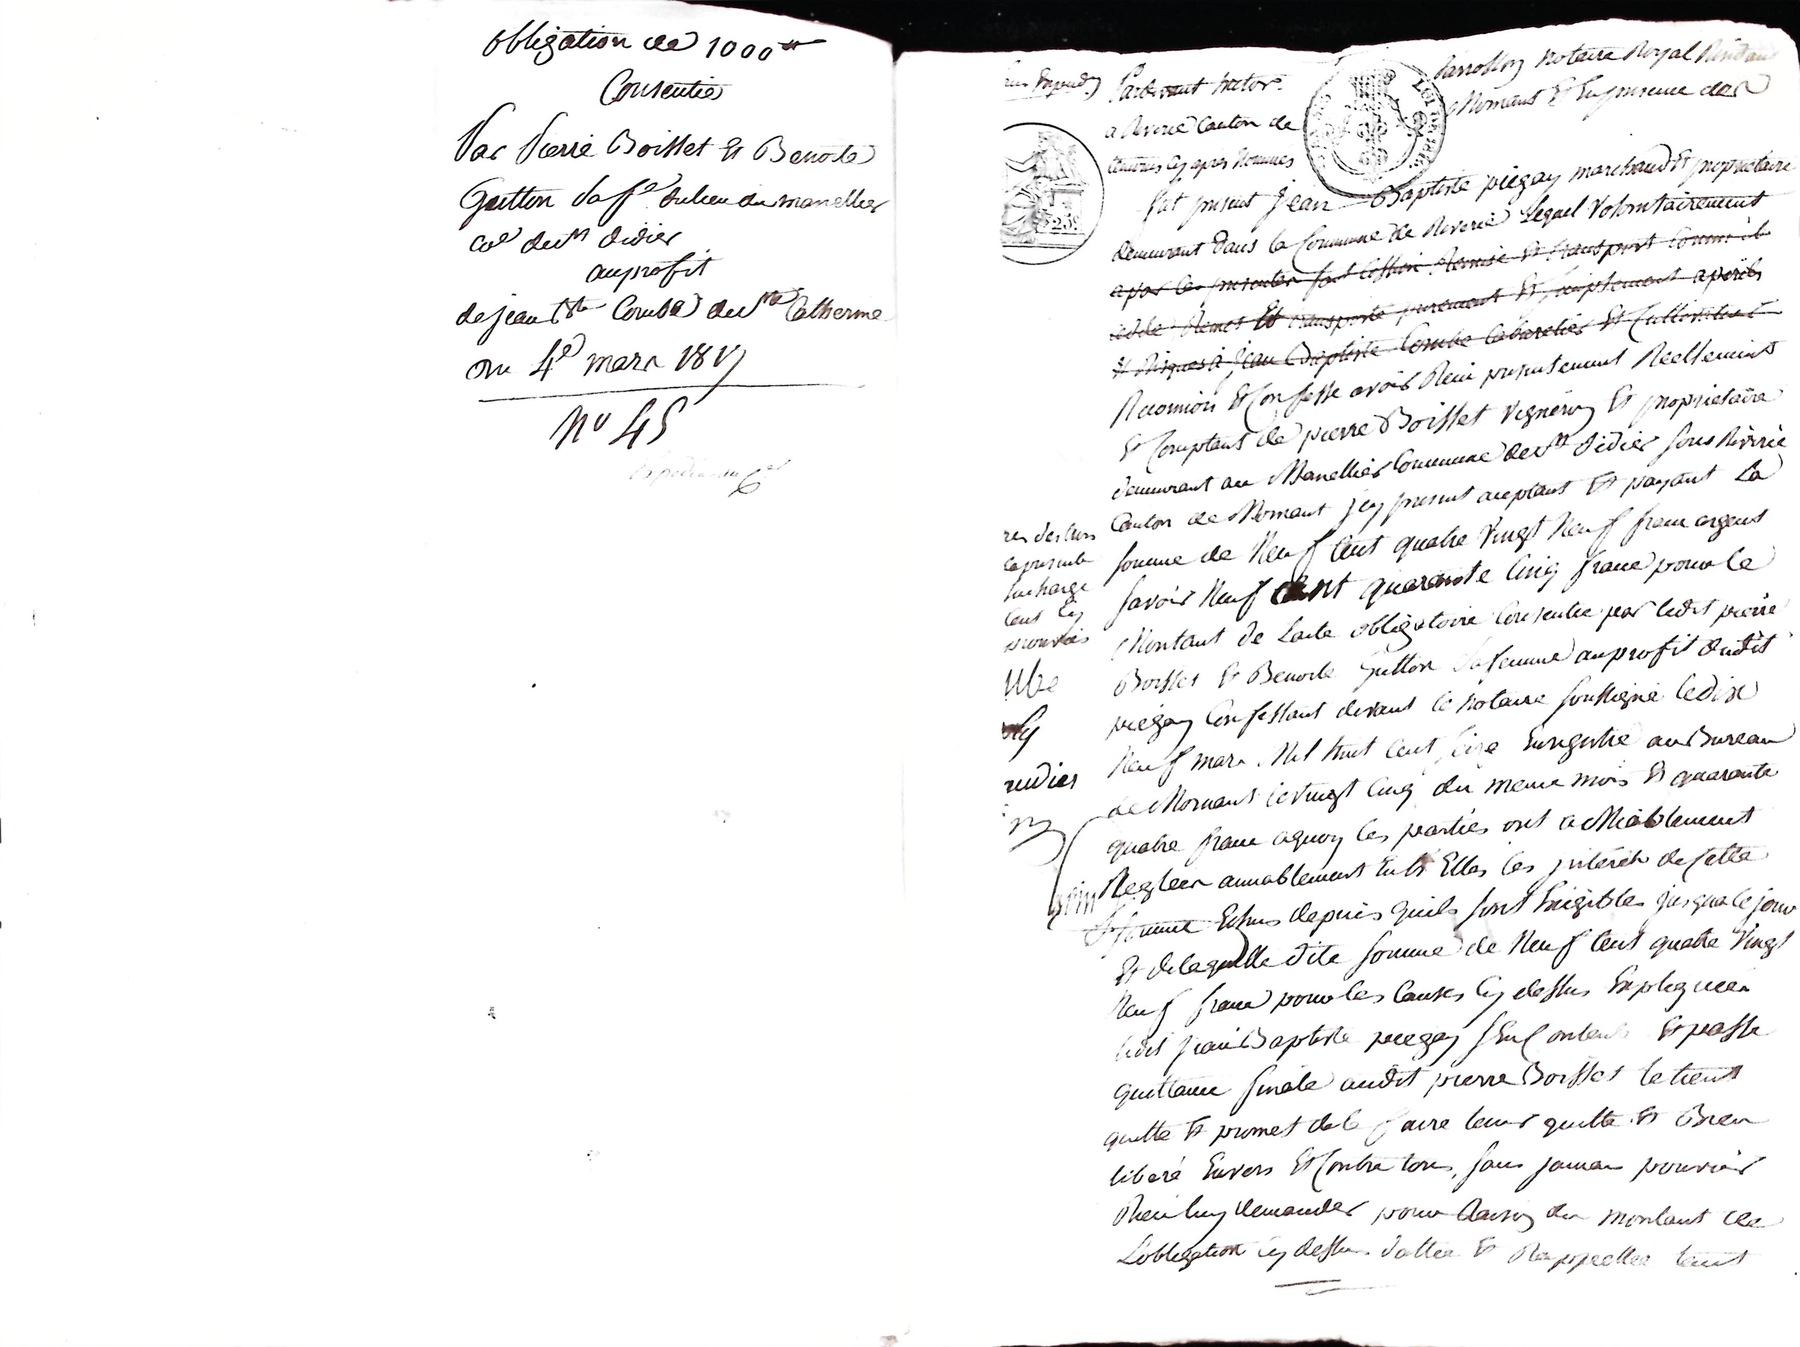 obligation de 1000#
Consentie
Par Pierre Boisset Et Benoite
Guitton sa fe dulieu du manellier
coe de st didier
au profit
de jean Bte Combe de ste Catherine
Du 4e mars 1817
No 45
Pardevant notre
Notaire Royal Residant
a Riverie Canton de
Mornant Et En presence des
temoins cy apres Nommés
fut present Jean Baptiste piegay marchand Et proprietaire
demeurant dans la Commune de Riverie Lequel volontairement
a par les presentes fait Cession Remise Et transport comme il
cede Remet Et transporte purement Et simplement a perils
Et Risques à Jean Baptiste Combe Cabaretier Et Cultivateur
Reconnoit Et Confesse avoir Recu presentement Reellement
Et Comptant de pierre Boisset vigneron Et proprietaire
demeurant au Manellier Commune de st Didier sous Riverie
Canton de Mornant jcy present acceptant Et payant La
somme de Neuf Cent quatre vingt Neuf franc argent
savoir Neuf Cent quarante Cinq franc pour le
Montant de Lacte obligatoire Consentie par ledit pierre
Boisset Et Benoite Guitton sa femme au profit dudit
piegay Confessant devant le Notaire soussigné le dix
Neuf mars Mil huit Cent seize Enregistré au Bureau
de Mornant le vingt Cinq du meme mois Et quarante
quatre franc a quoy les parties ont amiablement
Regleer amiablement Entr Elles les jntérêts de cette
somme Echus depuis quils sont Exigibles jusqua ce jour
Et de laquelle dite somme de Neuf Cent quatre vingt
Neuf franc pour les Causes Cy dessus Expliquées
ledit Jean Baptiste piegay sen Contente Et passe
quittance finale audit pierre Boisset le tient
quitte Et promet de le faire tenir quitte Et Bien
liberé Envers Et Contre tous, sans jamais pouvoir
Rien luy demander pour Raison du montant de
Lobligation Cy dessus dattée Et Rappellée tant